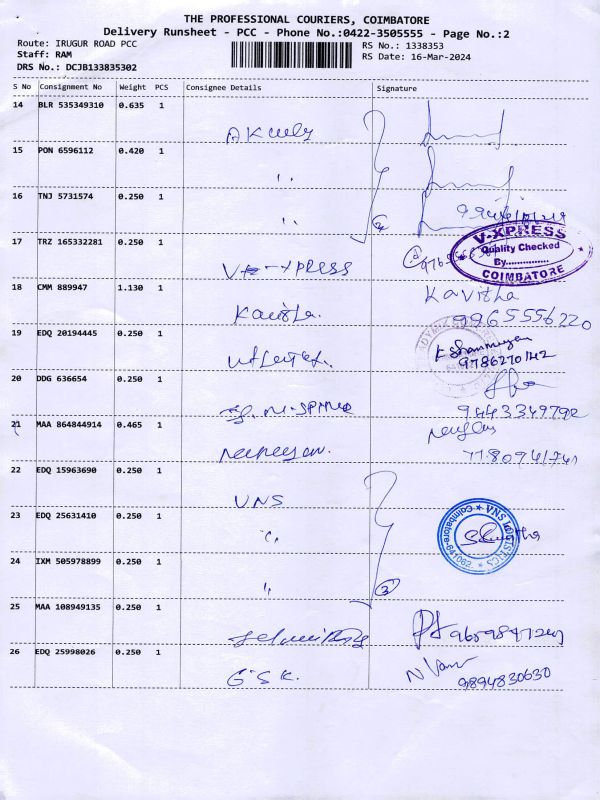 THE PROFESSIONAL COURIERS, COIMBATORE
Delivery Runsheet - PCC - Phone No.:0422-3505555 - Page No.:2
Route: IRUGUR ROAD PCC
RS No.: 1338353
Staff: RAM
RS Date: 16-Mar-2024
DRS No.: DCJB133835302
S No Consignment No Weight PCS Consignee Details Signature
14 BLR 535349310 0.635 1
15 PON 6596112 0.420 1
16 TNJ 5731574 0.250 1
17 TRZ 165332281 0.250 1
V-XPRESS
V-XPRESS
Quality Checked
By..............
COIMBATORE
18 CMM 889947 1.130 1
Kavitha
9965556220
19 EDQ 20194445 0.250 1
K Shanmugam
9786270142
20 DDG 636654 0.250 1
9443349792
21 MAA 864844914 0.465 1
22 EDQ 15963690 0.250 1
VNS
23 EDQ 25631410 0.250 1
VNS LOGISTICS
Coimbatore-641062
24 IXM 505978899 0.250 1
3
25 MAA 108949135 0.250 1
26 EDQ 25998026 0.250 1
G.S.K.
9894830630